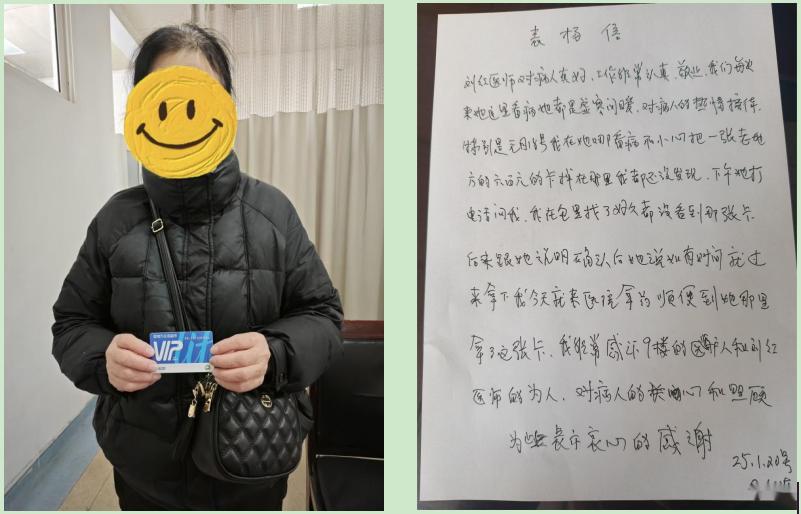 VIP
表扬信
刘红医师对病人友好、工作非常认真、敬业、我们每次
来她这里看病她都是嘘寒问暖、对病人的热情接待、
特别是元月18号我在她那看病不小心把一张去地
方的六百元的卡掉在那里我都还没发现、下午她打
电话问我、我在包里找了好久都没看到那张卡、
后来跟她说明正确认后她说如有时间就过
来拿下我今天就来医院拿药顺便到她那里
拿了这张卡、我非常感谢9楼的医护人和刘红
医师的为人、对病人的关心和照顾
为此表示衷心的感谢
25.1.20号